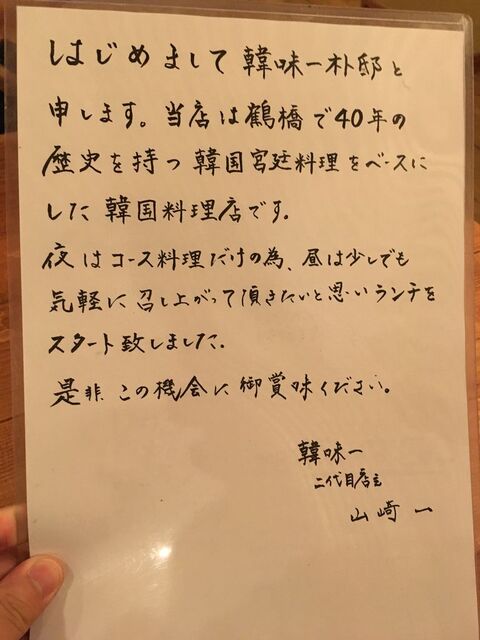 はじめまして韓味一朴邸と
申します。当店は鶴橋で40年の
歴史を持つ韓国宮廷料理をベースに
した韓国料理店です。
夜はコース料理だけの為、昼は少しでも
気軽に召し上がって頂きたいと思いランチを
スタート致しました。
是非この機会に御賞味ください。
韓味一
二代目店主
山崎一